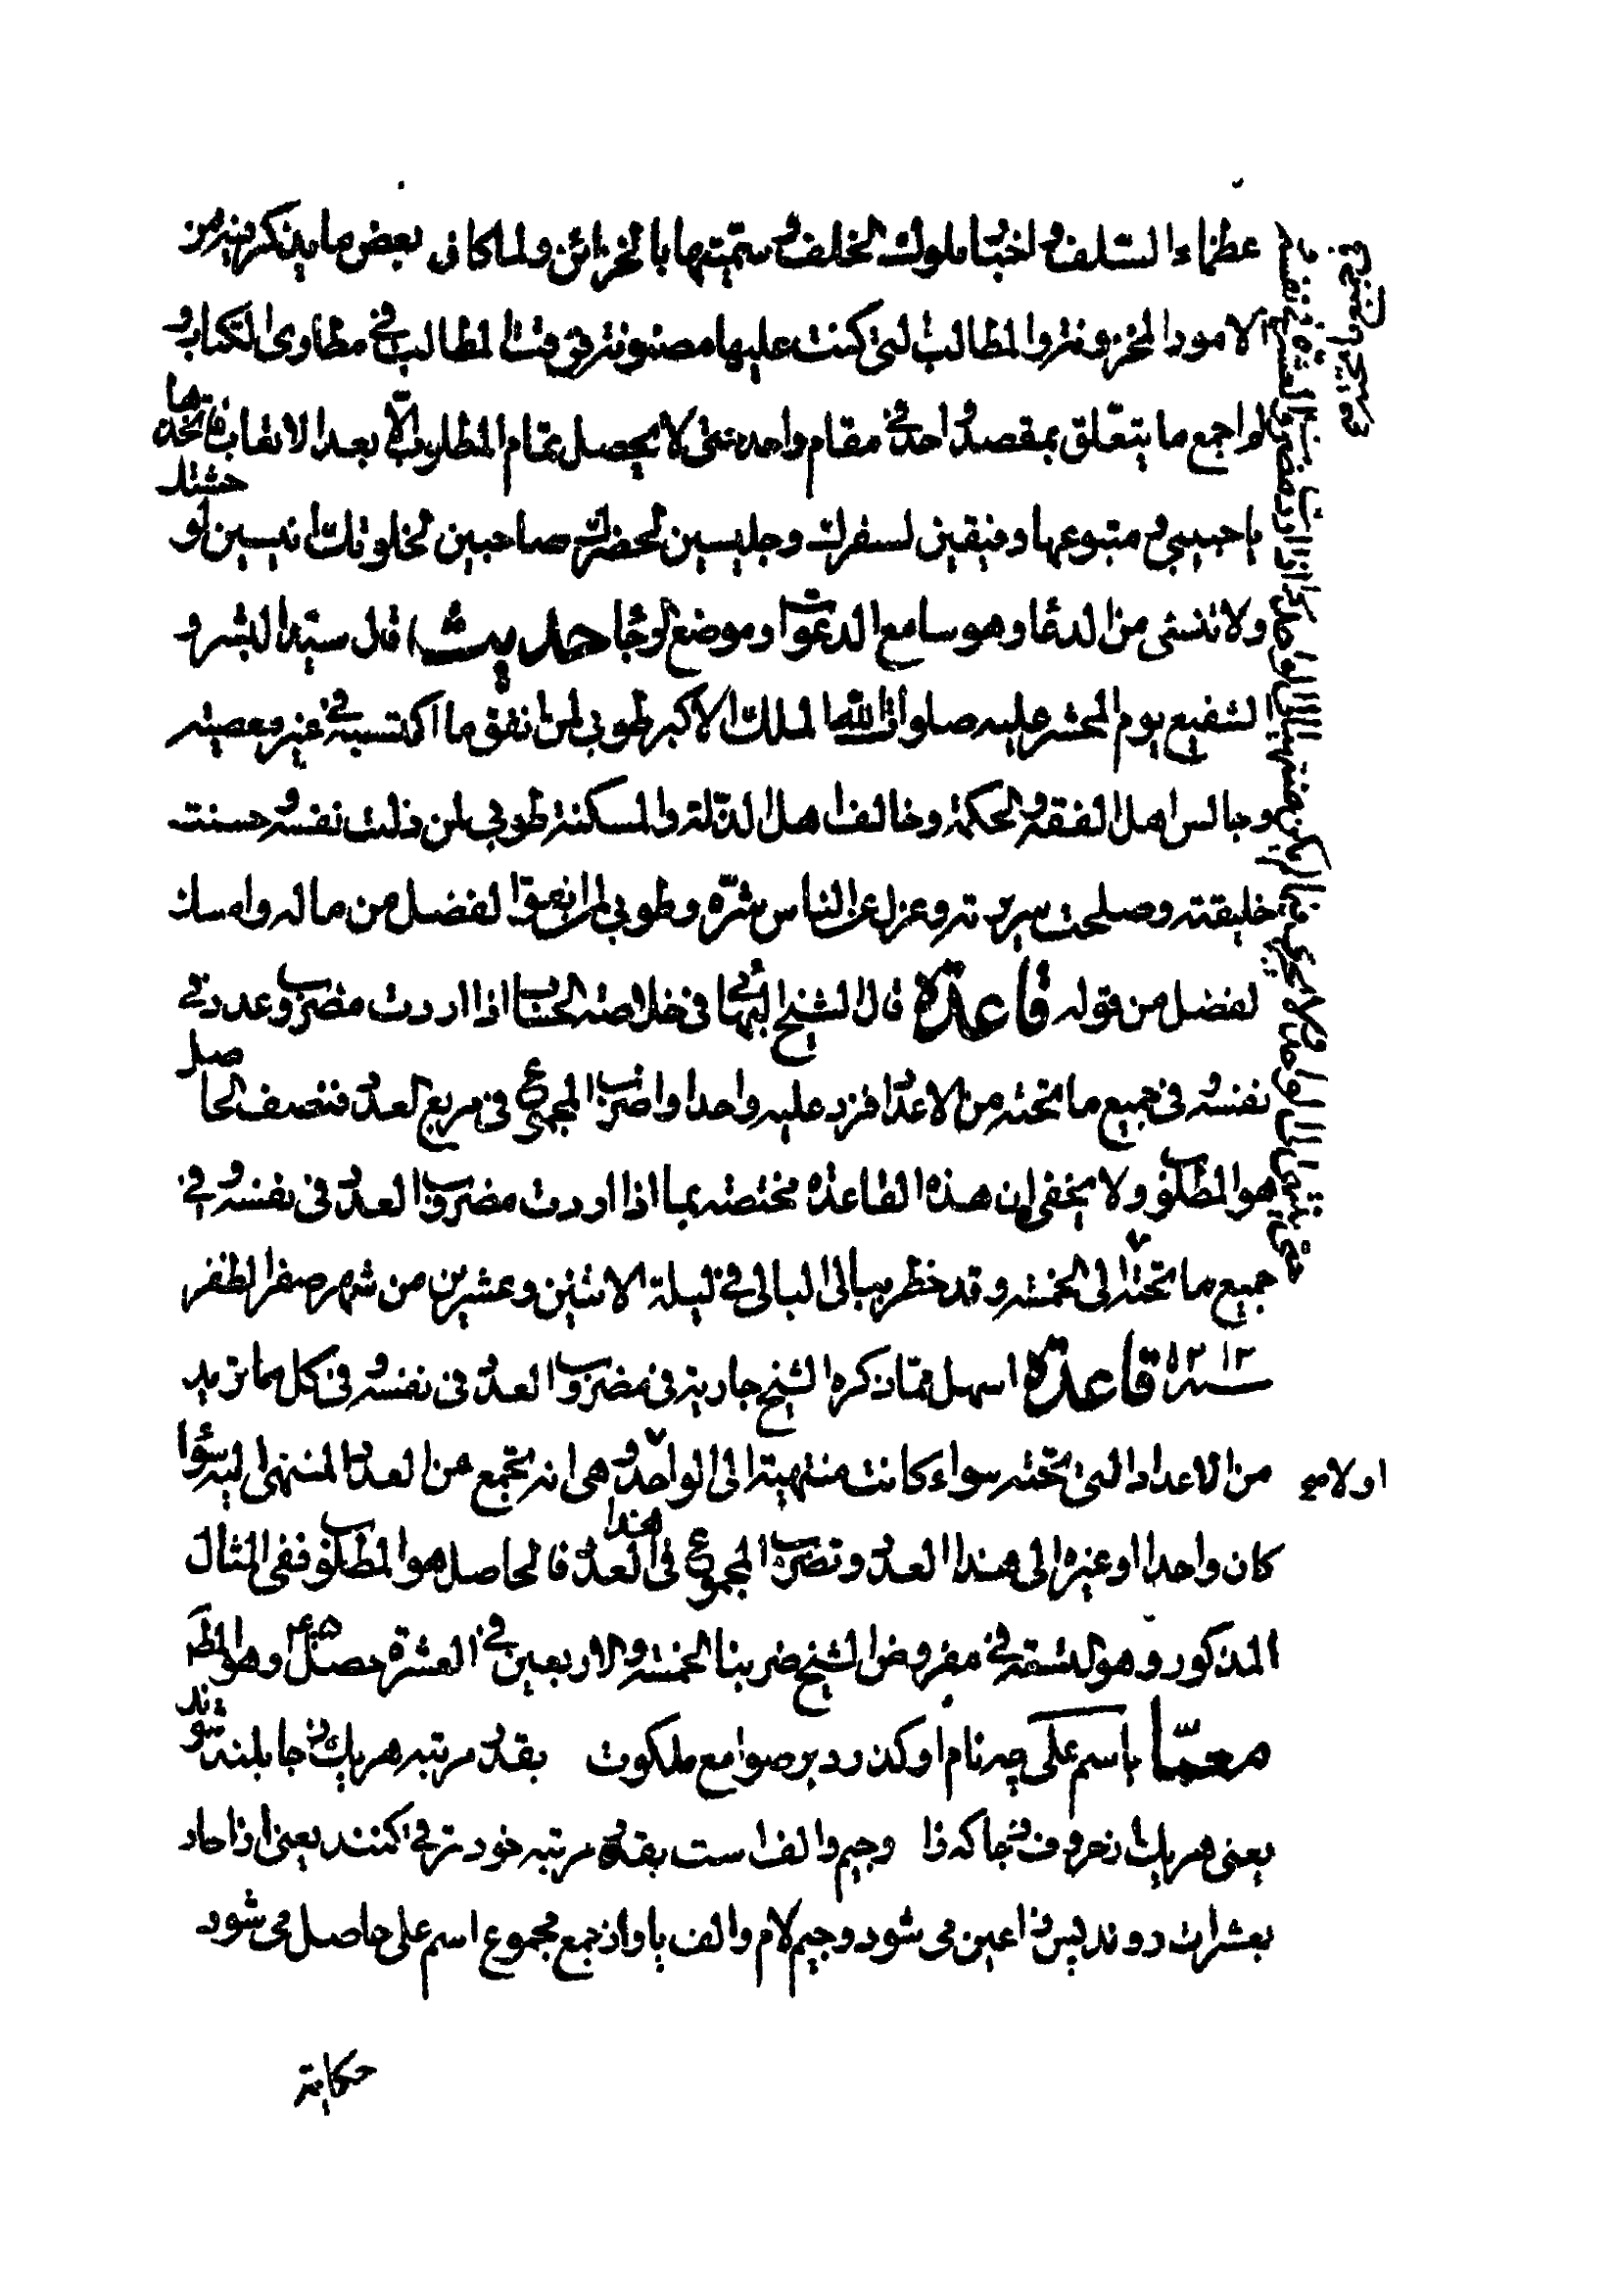 عظماء السلف و اخبار ملوك الخلف و سمّيتها بالخزائن و لما كان في بعض ما يذكر فيه من
الامور المخزونة و المطالب التي كنت عليها مصونة فرقت المطالب في مطاوى الكتاب و
لم اجمع ما يتعلق بمقصد واحد في مقام واحد حتى لا يحصل تمام المطلوب الّا بعد الاتعاب فاتخذها
يا حبيبي و متبوعها رفيقين لسفرك و جليسين لحضرك و صاحبين لخلوتك انيسين لوحشتك
و لا تنسني من الدعاء و هو سامع الدعوات و موضع الرجاء حديث قال سيد البشر و
الشفيع يوم المحشر عليه صلوات الله الملك الاكبر طوبى لمن انفق ما اكتسبه في غير معصيته
و جالس اهل الفقه و الحكمة و خالف اهل الذلة و المسكنة طوبى لمن ذلت نفسه و حسنت
خليقته و صلحت سريرته و عزل عن الناس شرّه و طوبى لمن انفق الفضل من ماله و امسك
الفضل من قوله قاعدة قال الشيخ البهائي في خلاصة الحساب اذا اردت مضروب عدد في
نفسه و في جميع ما تحته من الاعداد فزد عليه واحدا و اضرب المجموع في مربع العدد فنصف الحاصل
هو المطلوب و لا يخفى ان هذه القاعدة مختصة بما اذا اردت مضروب العدد في نفسه و في
جميع ما تحته الى الخمسة و قد خطر ببالى البالى في ليلة الاثنين و عشرين من شهر صفر المظفر
سنة ١٢١٣ قاعدة اسهل ممّا ذكره الشيخ جارية في مضروب العدد في نفسه و في كل ما تريد
من الاعداد التي تحته سواء كانت منتهية الى الواحد و هى انه تجمع من العدد المنتهى اليه سواء
اولا صح
كان واحدا او غيره الى هذا العدد و تضرب المجموع في هذا العدد فالحاصل هو المطلوب ففى المثال
المذكور و هو التسعة في مفروض الشيخ ضربنا الخمسة و الاربعين في العشرة حصل و هو المطـ
معمّا باسم على چه نام او گذرد بر صوامع ملكوت بقدر مرتبه هر يك ز جا بلند شوند
يعنى هر يك از حروف ز جا كه زا و جيم و الف است بقدر مرتبه خود ترقى كنند يعنى از احاد
بعشرات روند پس زا عين مى شود و جيم لام و الف يا و از جمع مجموع اسم على حاصل مى شود
حكاية